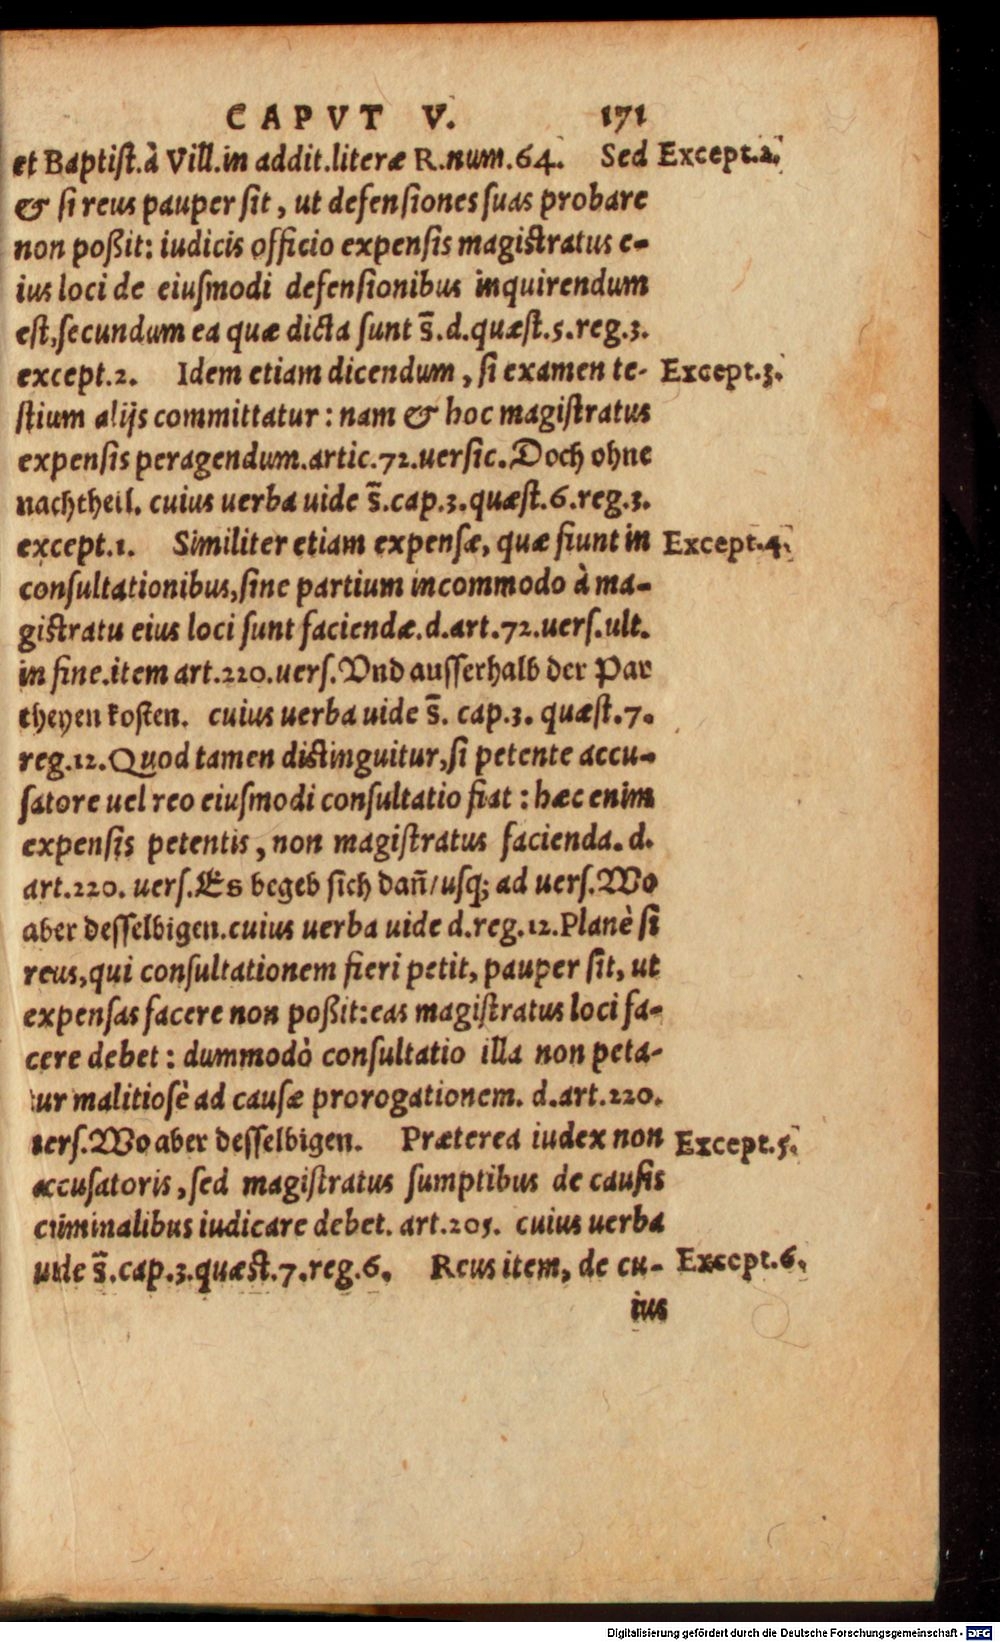 CAPVT V. 171
et Baptist.à Vill.in addit.literæ R.num.64. Sed Except.2.
& si reus pauper sit, ut defensiones suas probare
non poßit: iudicis officio expensis magistratus e-
ius loci de eiusmodi defensionibus inquirendum
est, secundum ea quæ dicta sunt s̄.d.quæst.5.reg.3.
except.2. Idem etiam dicendum, si examen te- Except.3.
stium alijs committatur: nam & hoc magistratus
expensis peragendum.artic.72.uersic.Doch ohne
nachtheil. cuius uerba uide s̄.cap.3.quæst.6.reg.3.
except.1. Similiter etiam expensæ, quæ fiunt in Except.4.
consultationibus, sine partium incommodo à ma-
gistratu eius loci sunt faciendæ.d.art.72.uers.ult.
in fine.item art.220.uers.Vnd ausserhalb der Par
theyen kosten. cuius uerba uide s̄. cap.3. quæst.7.
reg.12.Quod tamen distinguitur, si petente accu-
satore uel reo eiusmodi consultatio fiat: hæc enim
expensis petentis, non magistratus facienda. d.
art.220. uers.Es begeb sich dañ/usq; ad uers.Wo
aber desselbigen.cuius uerba uide d.reg.12.Planè si
reus, qui consultationem fieri petit, pauper sit, ut
expensas facere non poßit:eas magistratus loci fa-
cere debet: dummodò consultatio illa non peta-
tur malitiosè ad causæ prorogationem. d.art.220.
uers.Wo aber desselbigen. Præterea iudex non Except.5.
accusatoris, sed magistratus sumptibus de causis
criminalibus iudicare debet. art.205. cuius uerba
uide s̄.cap.3.quæst.7.reg.6. Reus item, de cu- Except.6.
ius
Digitalisierung gefördert durch die Deutsche Forschungsgemeinschaft - DFG